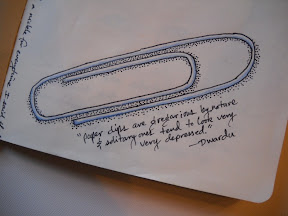 "paper clips are gregarious by nature
& solitary ones tend to look very
very depressed."
—Dwardu
a made for everyone &